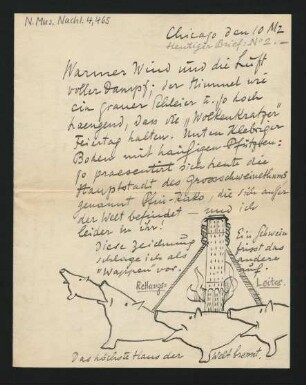 N. Mus. Nachl. 4, 465
Chicago den 10 Mz
Heutiger Brief: No 2.
Warmer Wind und die Luft
voller Dampf; der Himmel wie
ein grauer Schleier u. so hoch
haengend, dass die „Wolkenkratzer"
Feiertag halten. Unten klebriger
Boden mit haeufigen Pfützen:
so praesentirt sich heute die
Hauptstadt des Grosschweinethums
genannt, die sich auf
der Welt befindet – und ich
leider in ihr!
Diese Zeichnung
schlage ich als
„Wappen" vor.
Ein Schwein
frisst das
andere
auf.
Rettungs
Leiter.
Das höchste Haus der
Welt brennt.